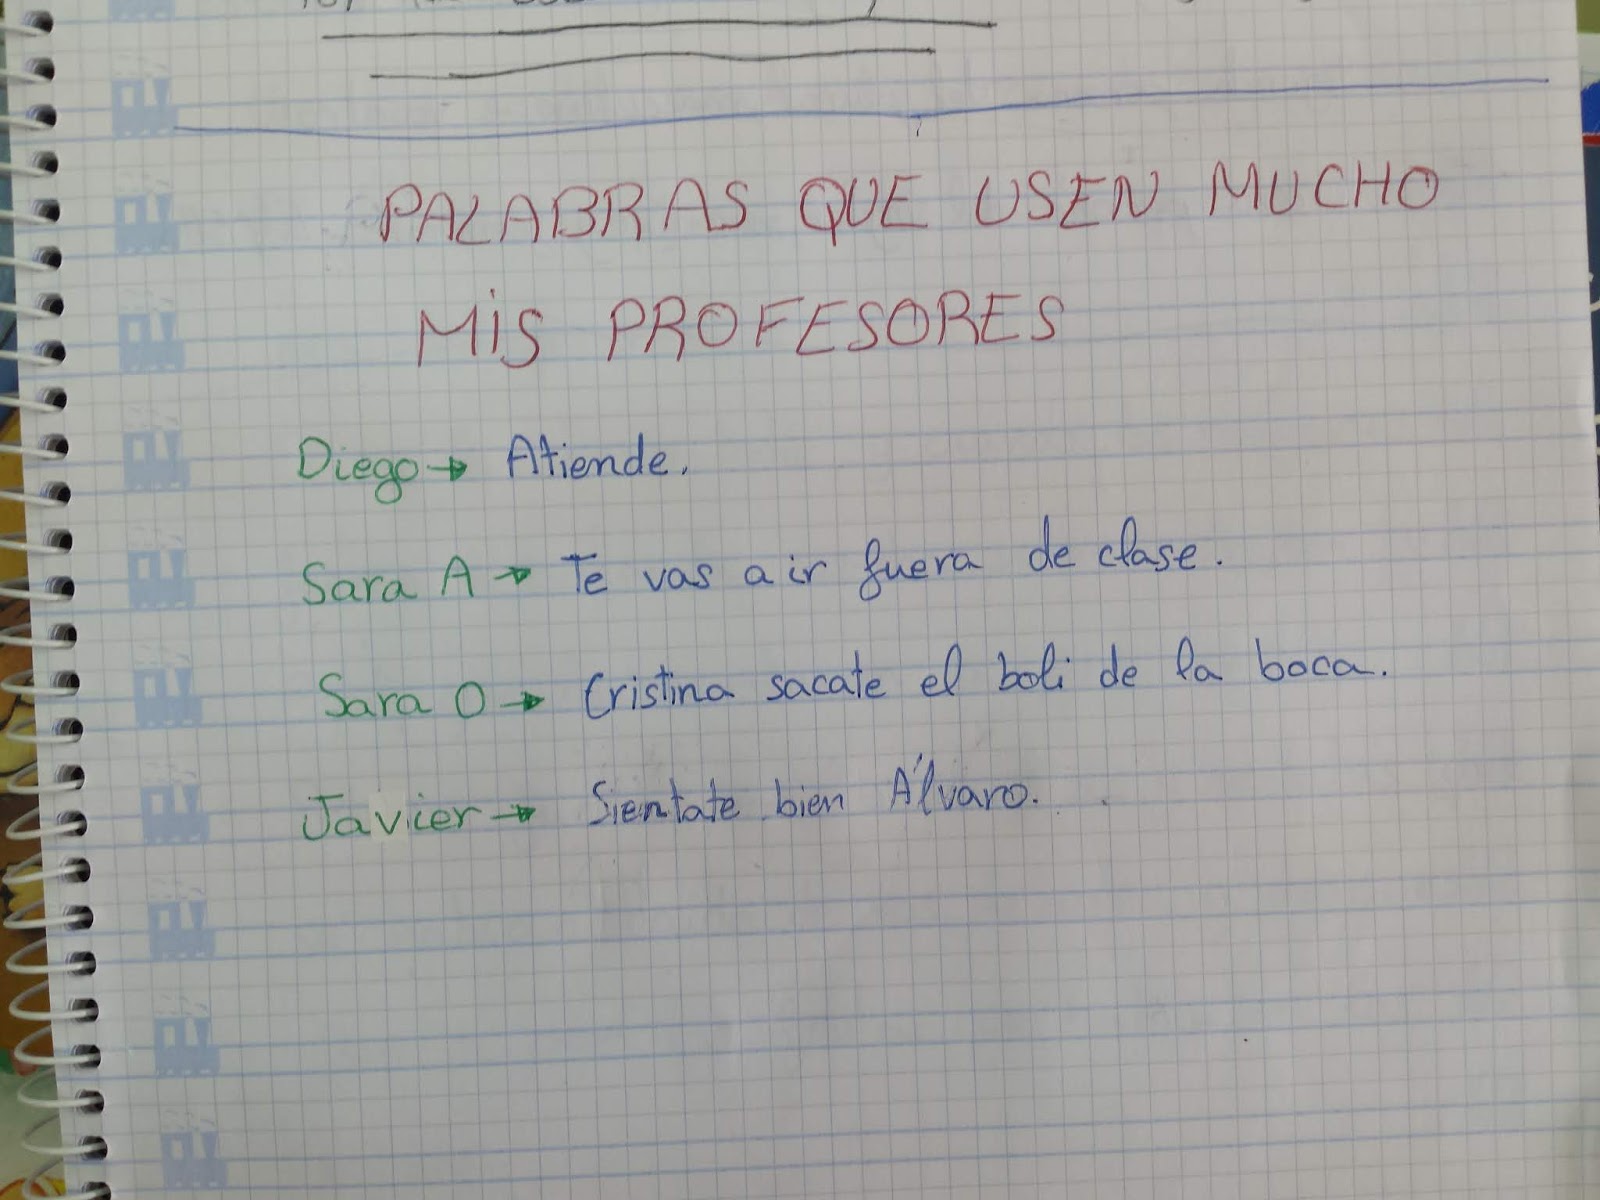 PALABRAS QUE USEN MUCHO
MIS PROFESORES
Diego → Atiende.
Sara A → Te vas a ir fuera de clase.
Sara O → Cristina sacate el boli de la boca.
Javier → Sientate bien Álvaro.